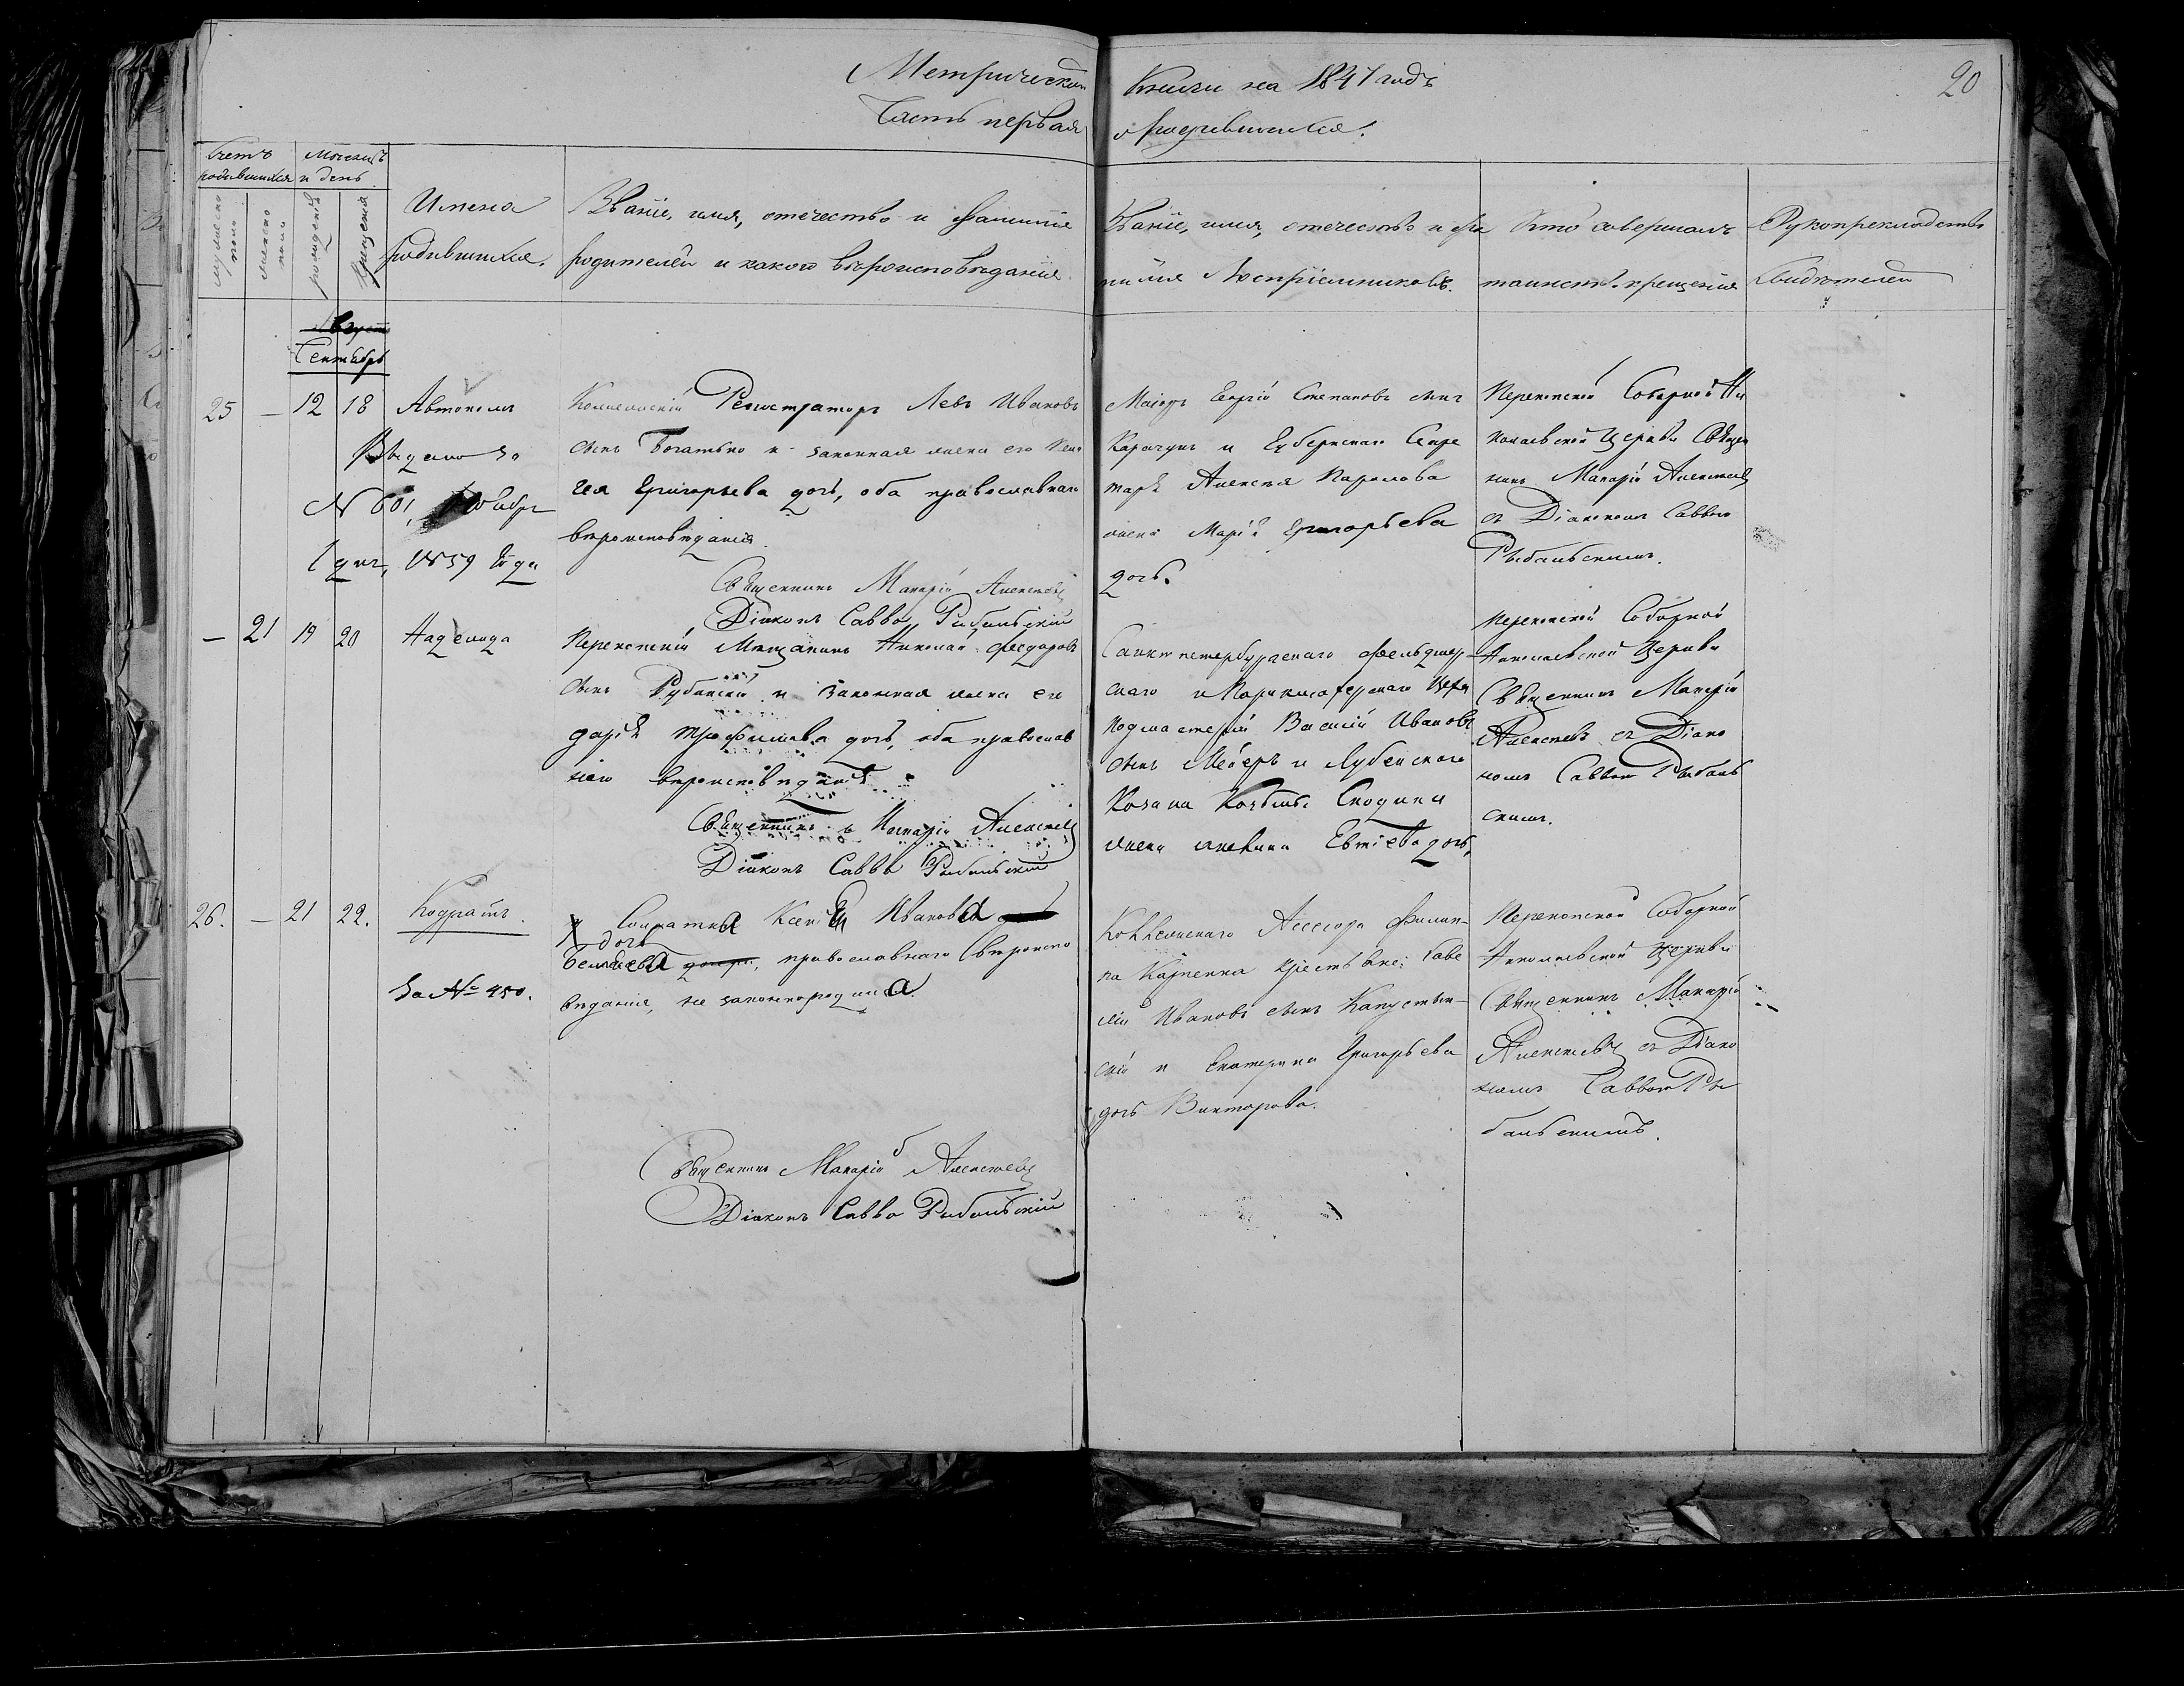 Метрической Книги на 1847 годъ
20
Часть первая о родившихся.
Счетъ родившихся
Месяцъ и день
мужеска пола
женска пола
рожденія
крещенія
Имена
родившихся.
Званіе, имя, отечество и фамилія
родителей и какого вероисповеданія.
Званіе, имя, отечество и фа
милія Воспріемниковъ.
Кто совершалъ
таинство крещенія
Рукоприкладство
Свидетелей
Августъ
Сентябрь
25 — 12 18 Автономъ
Выдано за
N 601,
1 дня, 1859 года
Коллежскій Регистраторъ Левъ Ивановъ
сынъ Богатько и законная жена его
Григорьева дочь, оба православнаго
вероисповеданія.
Священникъ Макарій Алексеевъ
Діаконъ Савва Рыбальскій
Маіоръ Георгій Степановъ сынъ
Карачунъ и Губернскаго Секре
таря Алексея Парпова
жена Марія Григорьева
дочь.
Перекопской Соборной Ни
колаевской Церкви Священ
никъ Макарій Алексеевъ
съ Діакономъ Саввою
Рыбальскимъ.
— 21 19 20 Надежда
Перекопскій Мещанинъ Николай Федоровъ
сынъ Рубанскій и законная жена его
Дарія Трофимова дочь, оба православ
наго вероисповеданія
Священникъ Макарій Алексеевъ
Діаконъ Савва Рыбальскій
Санктпетербургскаго фельдшер
скаго и Парикмахерскаго Цеха
подмастерій Василій Ивановъ
сынъ Мейеръ и Лубенскаго
Козака
жена Евтіева дочь.
Перекопской Соборной
Николаевской Церкви
Священникъ Макарій
Алексеевъ съ Діако
номъ Саввою Рыбаль
скимъ.
26. — 21 22. Кодратъ.
За № 450.
Солдатка Ксенія Иванова
дочь
православнаго вероиспо
веданія, не законнороднна.
Священникъ Макарій Алексеевъ
Діаконъ Савва Рыбальскій
Коллежскаго Асессора Филип
па Карпенка крестьяне: Саве
лій Ивановъ сынъ Капустян
скій и Екатерина Григорьева
дочь Викторова.
Перекопской Соборной
Николаевской Церкви
Священникъ Макарій
Алексеевъ съ Діако
номъ Саввою Ры
бальскимъ.